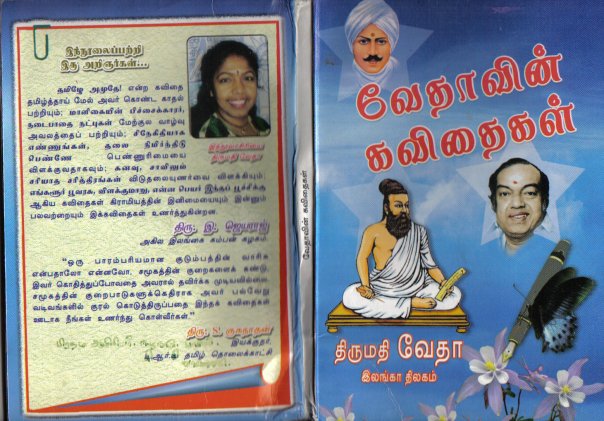 இந்நூலைப்பற்றி
இரு அறிஞர்கள்...
தமிழே அமுதே! என்ற கவிதை
தமிழ்த்தாய் மேல் அவர் கொண்ட காதல்
பற்றியும்; மாளிகையின் பிச்சைக்காரர்,
நடைபாதை நட்புகள் மேற்குல வாழ்வு
அவலத்தைப் பற்றியும்; சிநேகிதியாக
எண்ணுங்கள், தலை நிமிர்ந்திடு
பெண்ணே பெண்ணுரிமையை
விளக்குவதாகவும்; கூண்டு,
சரியாத சரித்திரங்கள் விடுதலையுணர்வை விளக்கியும்;
எங்களூர் பூவரசு, விளக்குமாறு, என்ன பெயர் இந்தப் பூச்சிக்கு
ஆகிய கவிதைகள் கிராமியத்தின் இனிமையையும் இன்னும்
பலவற்றையும் இக்கவிதைகள் உணர்த்துகின்றன.
திரு. இ. ஜெயராஜ்
அகில இலங்கை கம்பன் கழகம்.
"ஒரு பாரம்பரியமான குடும்பத்தின் வாரிசு
என்பதாலோ என்னவோ, சமூகத்தின் குறைகளைக் கண்டு,
இவர் கொதித்துப்போவதை அவரால் தவிர்க்க முடியவில்லை.
சமூகத்தின் குறைபாடுகளுக்கெதிராக அவர் பல்வேறு
வடிவங்களில் குரல் கொடுத்திருப்பதை இந்தக் கவிதைகள்
ஊடாக நீங்கள் உணர்ந்து கொள்வீர்கள்."
திரு. S. குகநாதன்
இயக்குநர்,
தமிழ் தொலைக்காட்சி
திருமதி வேதா
வேதாவின் கவிதைகள்
வேதாவின்
கவிதைகள்
திருமதி வேதா
இலங்கா திலகம்